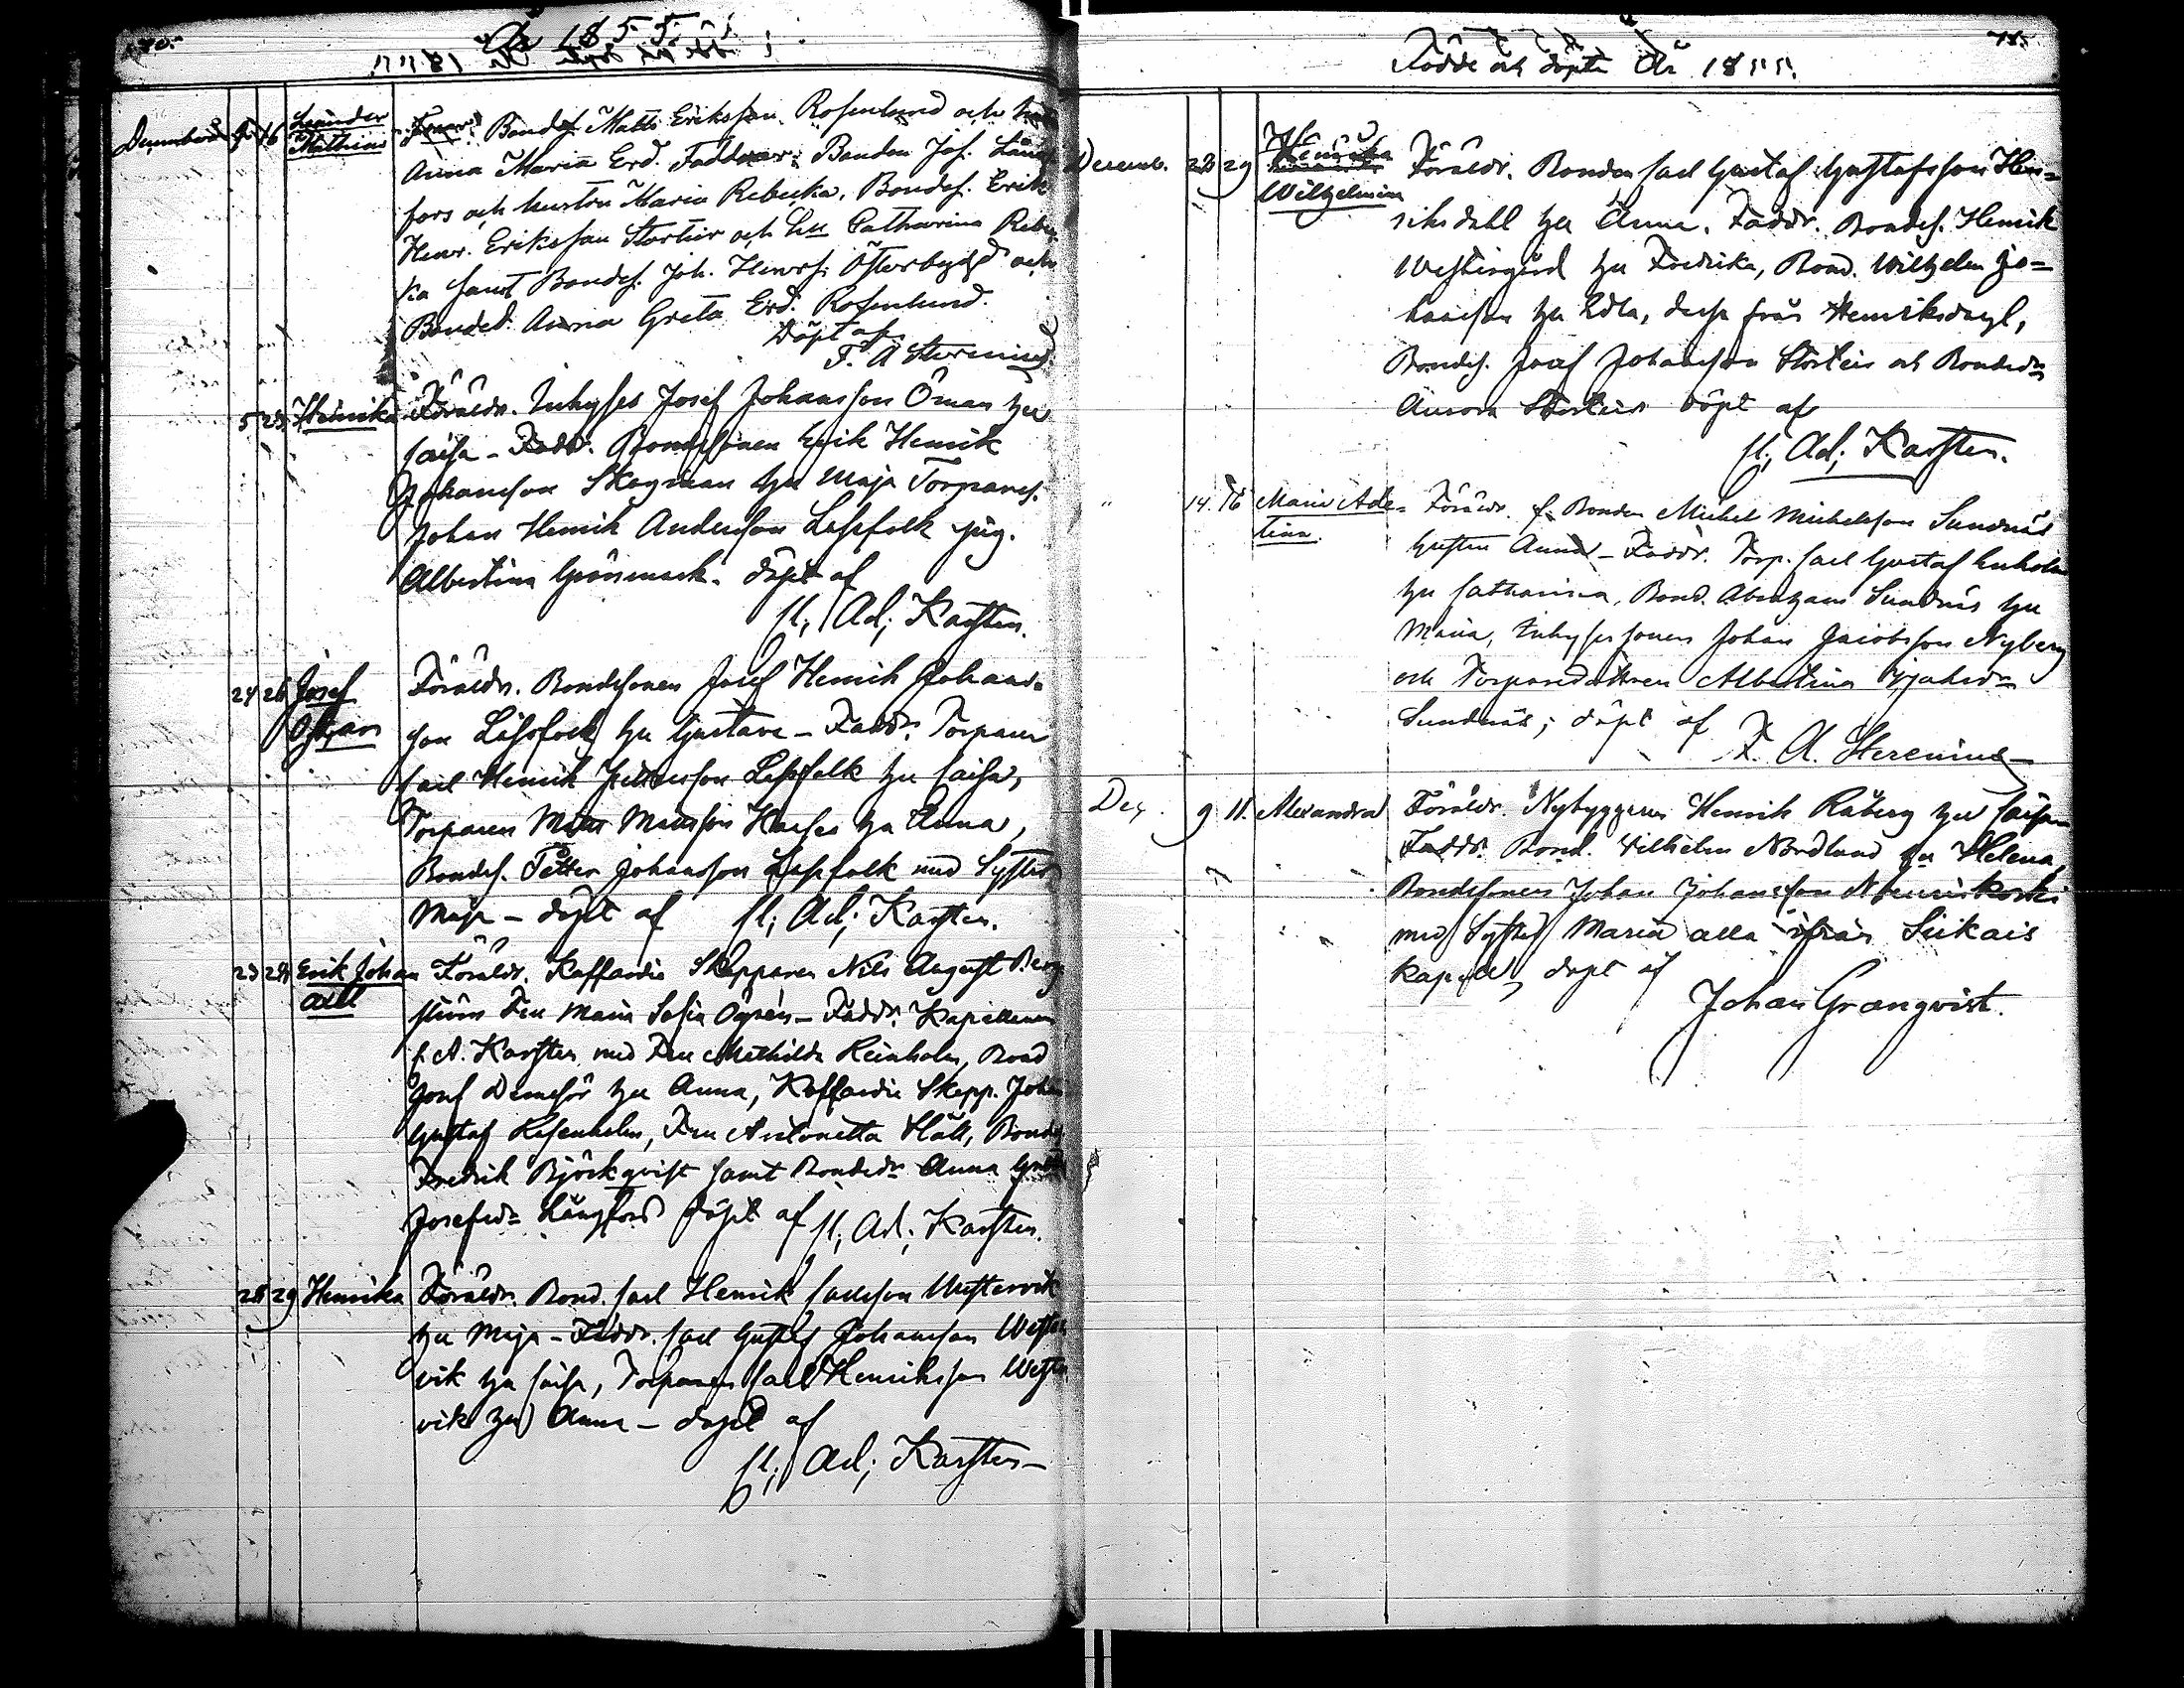 År 1855.
December 9. 16 Leander Mathias Föräldr. Bondes. Matts Eriksson Rosenlund och
Anna Maria Erd. Faddrar: Bonden Jos. Lång
fors och hustru Maria Rebecka, Bondes. Erik
Henr. Eriksson Storteir och Catharina Rebec
ka samt Bondes. Joh. Henrs. Österbygd och
Bonded. Anna Greta Erd. Rosenlund.
Döpt af
F. A Herenius
5 25 Henrika Föräldr. Inhyses Josef Johansson Öman hu
Caisa - Faddr. Bondesonen Erik Henrik
Johansson Skogman hu Maja Torpares.
Johan Henrik Andersson Lassfolk pig.
Albertina döpt af
C. Ad. Karsten.
24 26 Josef Oskar Föräldr. Bondesonen Josef Henrik Johans-
son Lassfolk hu Gustava - Faddr. Torparen
Carl Henrik Lassfolk hu Caisa,
Torparen Mattsson hu Anna,
Bondes. Petter Johansson Lassfolk med Syster
Maja - döpt af C. Ad. Karsten.
23 28 Erik Johan Axel Föräldr. Koffardie Skepparen Nils August Berg
ström Fru Maria Sofia Ögrén - Faddr. Kapellanen
C. A. Karsten med Fru Mathilda Reinholm, Bond
Josef hu Anna, Koffardie Skepp. Johan
Gustaf Rosenholm, Fru Antonetta Häll, Bondes.
Fredrik Björkqvist samt Bondedr Anna Greta
Josefsdr Långfors döpt af C. Ad. Karsten.
28 29 Henrika Föräldr. Bond. Carl Henrik Carlsson Westervik
hu Maja - Faddr. Carl Gustaf Johansson Wester
vik hu Caisa, Torparen Carl Henriksson Wester
vik hu Anna - döpt af
C. Ad. Karsten -
Födde och döpte År 1855.
785.
Decemb. 28 29 Henrika
Wilhelmina Föräldr. Bonden Carl Gustaf Gustafsson Hen-
riksdahl hu Anna. Faddr. Bondes. Henrik
Westergård hu Fredrika, Bond. Wilhelm Jo-
hansson hu Edla, dessa från Henriksdahl,
Bondes. Josef Johansson Störteir och Bondedr
Aurora Störteir döpt af
C. Ad. Karsten.
" 14. 16 Maria Ade-
lina. Föräldr. f. Bonden Michel Michelsson Sundnäs
hustru Anna - Faddr. Torp. Carl Gustaf
hu Catharina, Bond. Abraham Sundnäs hu
Maria, Inhysessonen Johan Jacobsson Nyberg
och Torparedottren Albertina
Sundnäs, döpt af
F. A. Herenius
Dec. 9 11. Alexandra Föräldr. Nybyggaren Henrik Råberg hu Caisa
Faddr. Bond. Vilhelm Nordlund hu Helena,
Bondesonen Johan Johansson
med Syster Maria alla ifrån Siikais
Kapell, döpt af
Johan Granqvist.